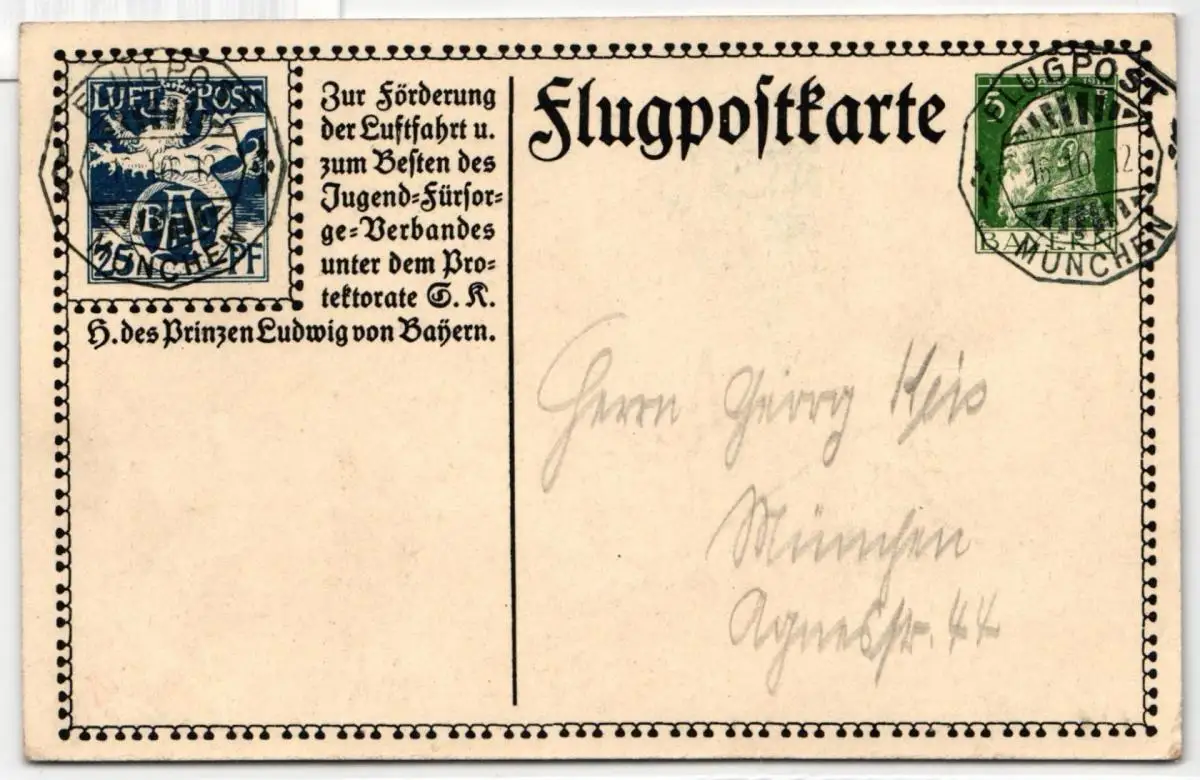 LUFT-POST
BAC
25 PF
FLUGPOST
16.10.12
MÜNCHEN
Zur Förderung
der Luftfahrt u.
zum Besten des
Jugend=Fürsor=
ge=Verbandes
unter dem Pro=
tektorate S. K.
H. des Prinzen Ludwig von Bayern.
Flugpostkarte
5
BAYERN
FLUGPOST
16.10.12
MÜNCHEN
Herrn Georg
München
Agnesstr. 44